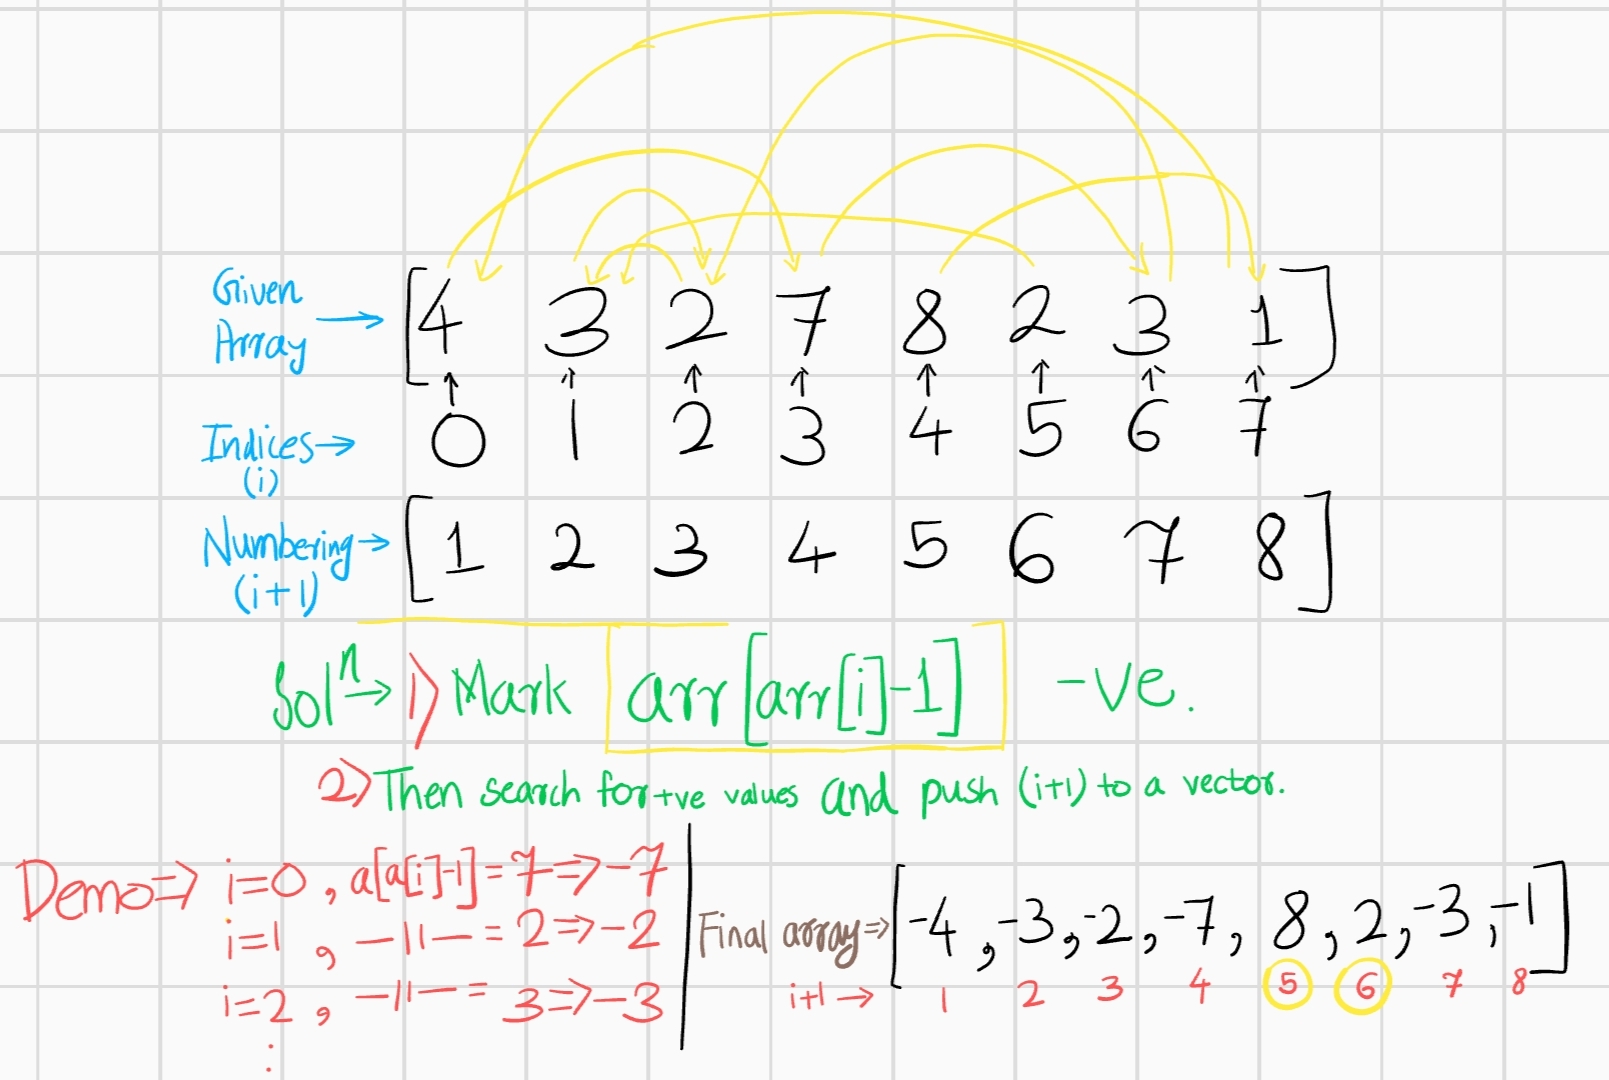 Given Array → [4 3 2 7 8 2 3 1]
↑ ↑ ↑ ↑ ↑ ↑ ↑ ↑
Indices → (i) 0 1 2 3 4 5 6 7
Numbering → (i+1) [1 2 3 4 5 6 7 8]
Solⁿ → 1) Mark arr[arr[i]-1] -ve.
2) Then search for +ve values and push (i+1) to a vector.
Demo => i=0 , a[a[i]-1] = 7 => -7
i=1 , —11— = 2 => -2
i=2 , —11— = 3 => -3
⋮
Final array => [-4 , -3 , -2 , -7 , 8 , 2 , -3 , -1]
i+1 → 1 2 3 4 5 6 7 8